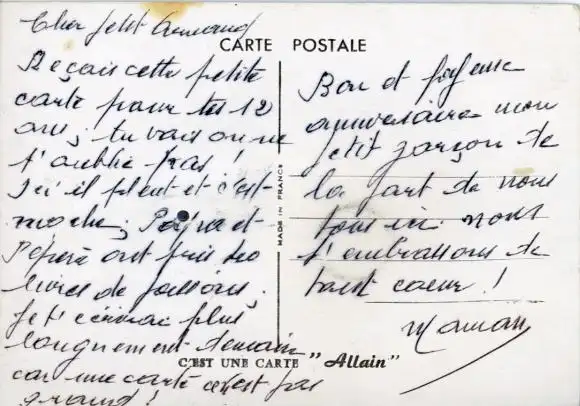 Cher petit Armand
CARTE POSTALE
Reçois cette petite
carte pour tes 12
ans; tu vois on ne
t'oublie pas!
Ici il pleut et c'est
moche; et
Pépère ont pris 20
livres de poissons.
Je t'écrirai plus
longuement demain
car une carte c'est pas
grand!
MADE IN FRANCE
Bon et joyeux
anniversaire mon
petit garçon de
la part de nous
tous ici. nous
t'embrassons de
tout coeur!
Maman
C'EST UNE CARTE "Allain"